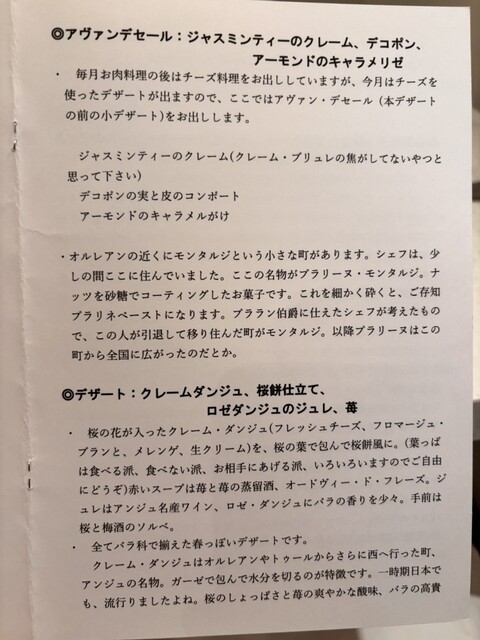 ◎アヴァンデセール：ジャスミンティーのクレーム、デコポン、
アーモンドのキャラメリゼ
・　毎月お肉料理の後はチーズ料理をお出ししていますが、今月はチーズを
使ったデザートが出ますので、ここではアヴァン・デセール（本デザート
の前の小デザート)をお出しします。
ジャスミンティーのクレーム(クレーム・ブリュレの焦がしてないやつと
思って下さい)
デコポンの実と皮のコンポート
アーモンドのキャラメルがけ
・オルレアンの近くにモンタルジという小さな町があります。シェフは、少
しの間ここに住んでいました。ここの名物がプラリーヌ・モンタルジ。ナ
ッツを砂糖でコーティングしたお菓子です。これを細かく砕くと、ご存知
プラリネペーストになります。プララン伯爵に仕えたシェフが考えたもの
で、この人が引退して移り住んだ町がモンタルジ。以降プラリーヌはこの
町から全国に広がったのだとか。
◎デザート：クレームダンジュ、桜餅仕立て、
ロゼダンジュのジュレ、苺
・　桜の花が入ったクレーム・ダンジュ(フレッシュチーズ、フロマージュ・
ブランと、メレンゲ、生クリーム)を、桜の葉で包んで桜餅風に。(葉っぱ
は食べる派、食べない派、お相手にあげる派、いろいろいますのでご自由
にどうぞ)赤いスープは苺と苺の蒸留酒、オードヴィー・ド・フレーズ。ジ
ュレはアンジュ名産ワイン、ロゼ・ダンジュにバラの香りを少々。手前は
桜と梅酒のソルベ。
・　全てバラ科で揃えた春っぽいデザートです。
クレーム・ダンジュはオルレアンやトゥールからさらに西へ行った町、
アンジュの名物。ガーゼで包んで水分を切るのが特徴です。一時期日本で
も、流行りましたよね。桜のしょっぱさと苺の爽やかな酸味、バラの高貴